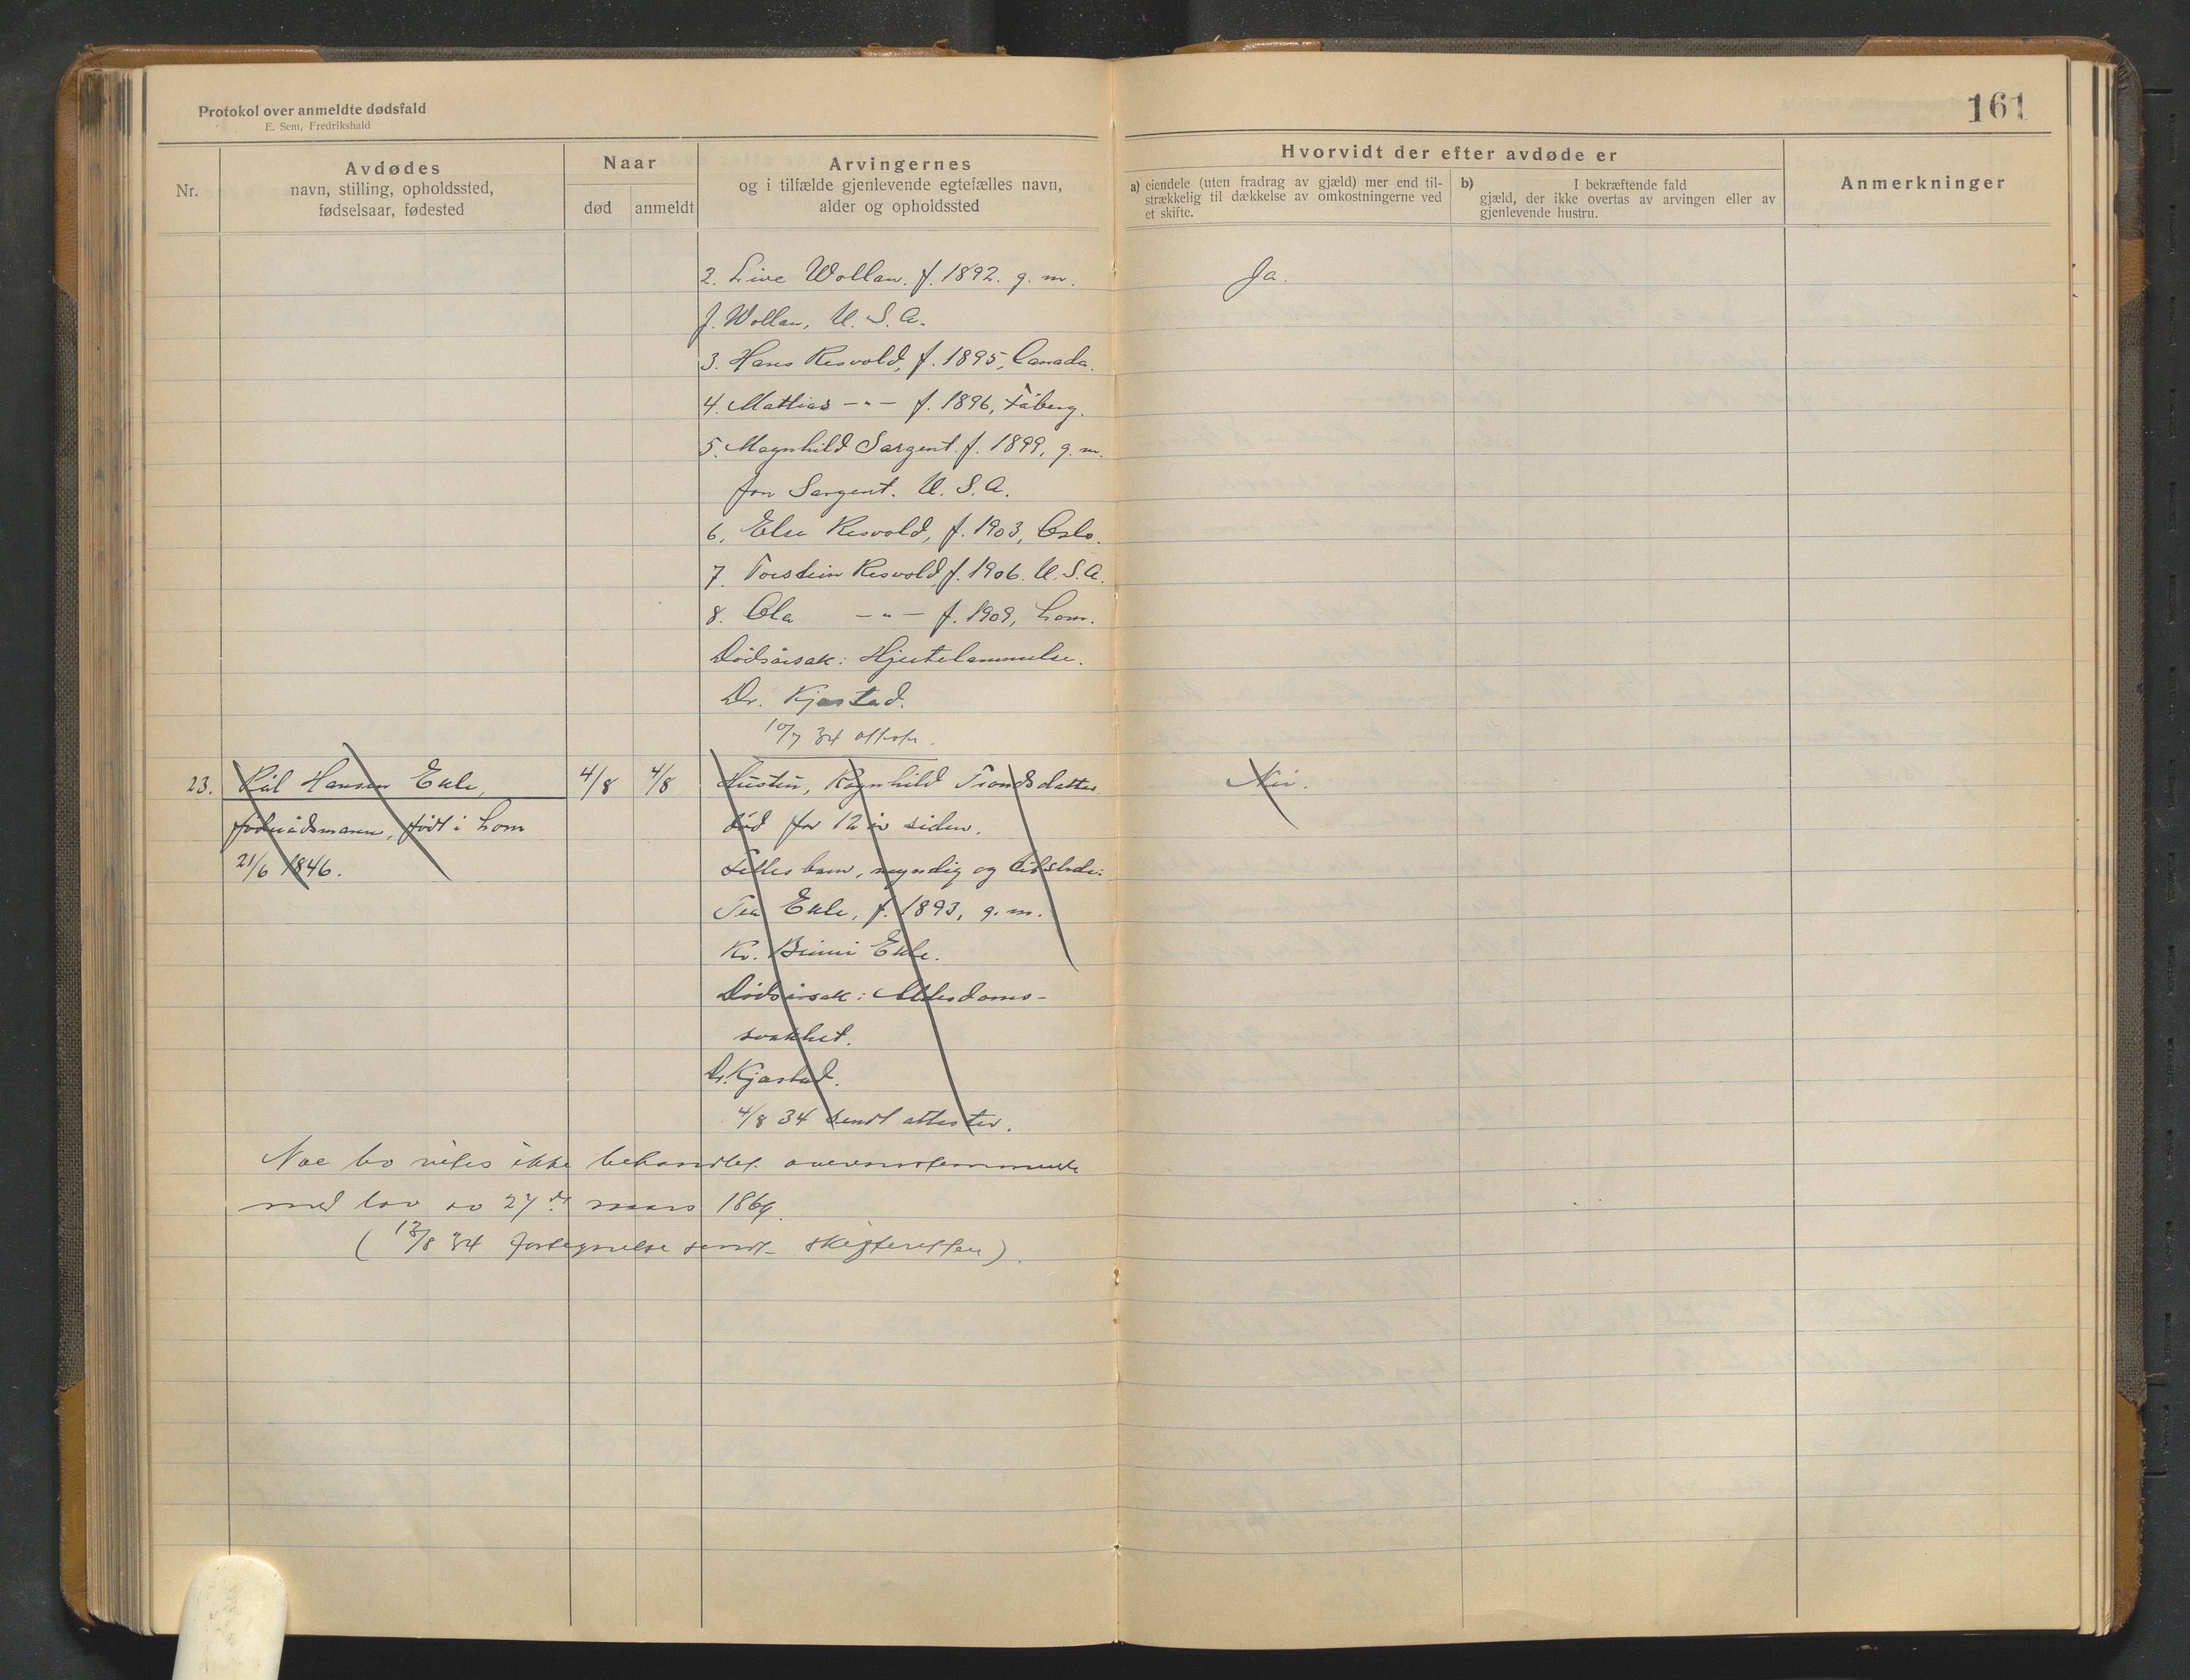 Protokol over anmeldte dødsfald
E. Sem, Fredrikshald
161
Nr.
Avdødes
navn, stilling, opholdssted,
fødselsaar, fødested
Naar
død
anmeldt
Arvingernes
og i tilfælde gjenlevende egtefælles navn,
alder og opholdssted
Hvorvidt der efter avdøde er
a) eiendele (uten fradrag av gjæld) mer end til-
strækkelig til dækkelse av omkostningerne ved
et skifte.
b) I bekræftende fald
gjæld, der ikke overtas av arvingen eller av
gjenlevende hustru.
Anmerkninger
2. Live Wollan. f. 1892. g. m. Ja.
J. Wollan, U. S. A.
3. Hans Resvold, f. 1895, Canada.
4. Mattias -"- f. 1896, Fåberg.
5. Magnhild Sargent. f. 1899, g. m.
Jon Sargent. U. S. A.
6. Else Resvold, f. 1903, Oslo.
7. Torstein Resvold f. 1906. U. S. A.
8. Ola -"- f. 1909, Lom.
Dødsårsak: Hjertelammelse.
Dr. Kjøstad.
10/7 34
23. Pål Hansen Ekle, 4/8 4/8 Hustru, Ragnhild Trondsdatter Nei.
føderådsmann, født i Lom død for 12 år siden.
21/6 1846. Felles barn, myndig og tilstede:
Tea Ekle, f. 1893, g. m.
Kr. Ekle.
Dødsårsak: Alderdoms-
svakhet.
Dr. Kjøstad.
4/8 34 sendt attester.
bo ikke behandlet overensstemmende
med lov av 27de mars 1869.
(13/8 34 fortegnelse sendt skifteretten).